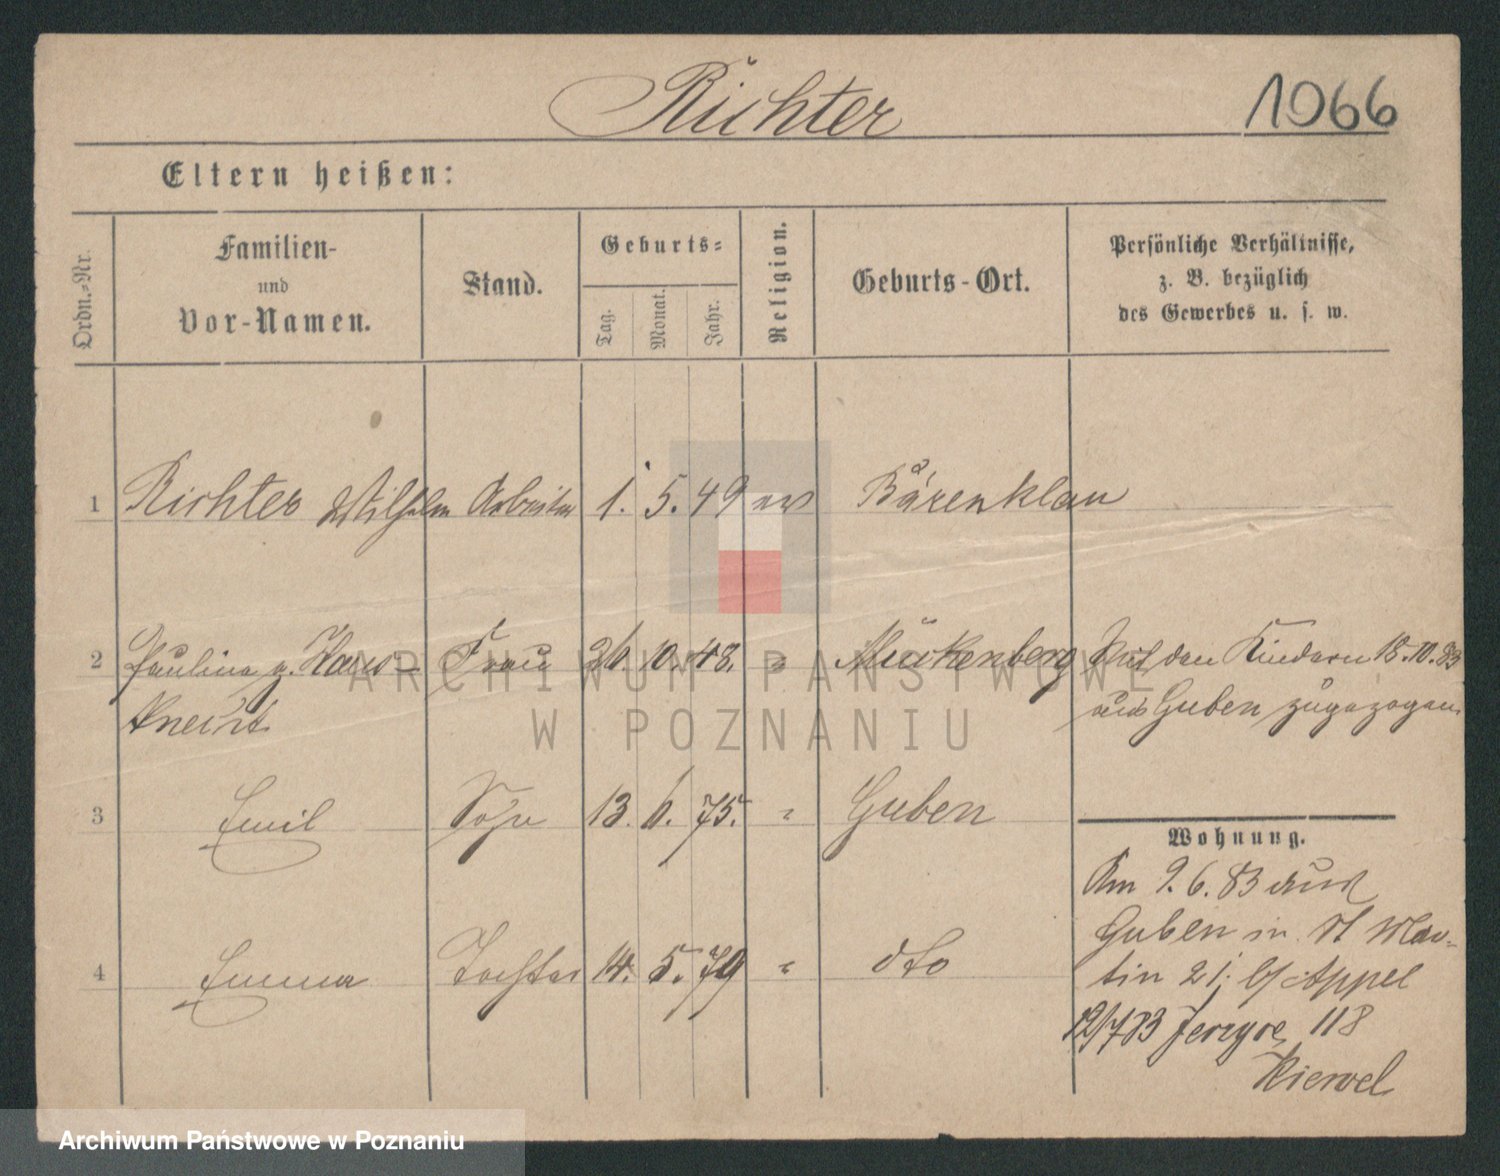 Richter 1066
Eltern heißen:
Ordn.-Nr. Familien- und Vor-Namen. Stand. Geburts- Tag. Monat. Jahr. Religion. Geburts-Ort. Persönliche Verhältnisse, z. B. bezüglich des Gewerbes u. s. w.
1 Richter Wilhelm Arbeiter 1. 5. 49 ev Bärenklau
2 Paulina g. Frau 26 10. 48. " Mückenberg Mit den Kindern 18.10.83
aus Guben zugezogen
3 Emil Sohn 13. 6. 75. " Guben
Wohnung.
Am 9.6.83 aus
Guben in St Mar-
4 Emma Tochter 14. 5. 79 " dto
tin 21. b/ Appel
12/7 83 Jerzyce 118
ARCHIWUM PAŃSTWOWE
W POZNANIU
Archiwum Państwowe w Poznaniu